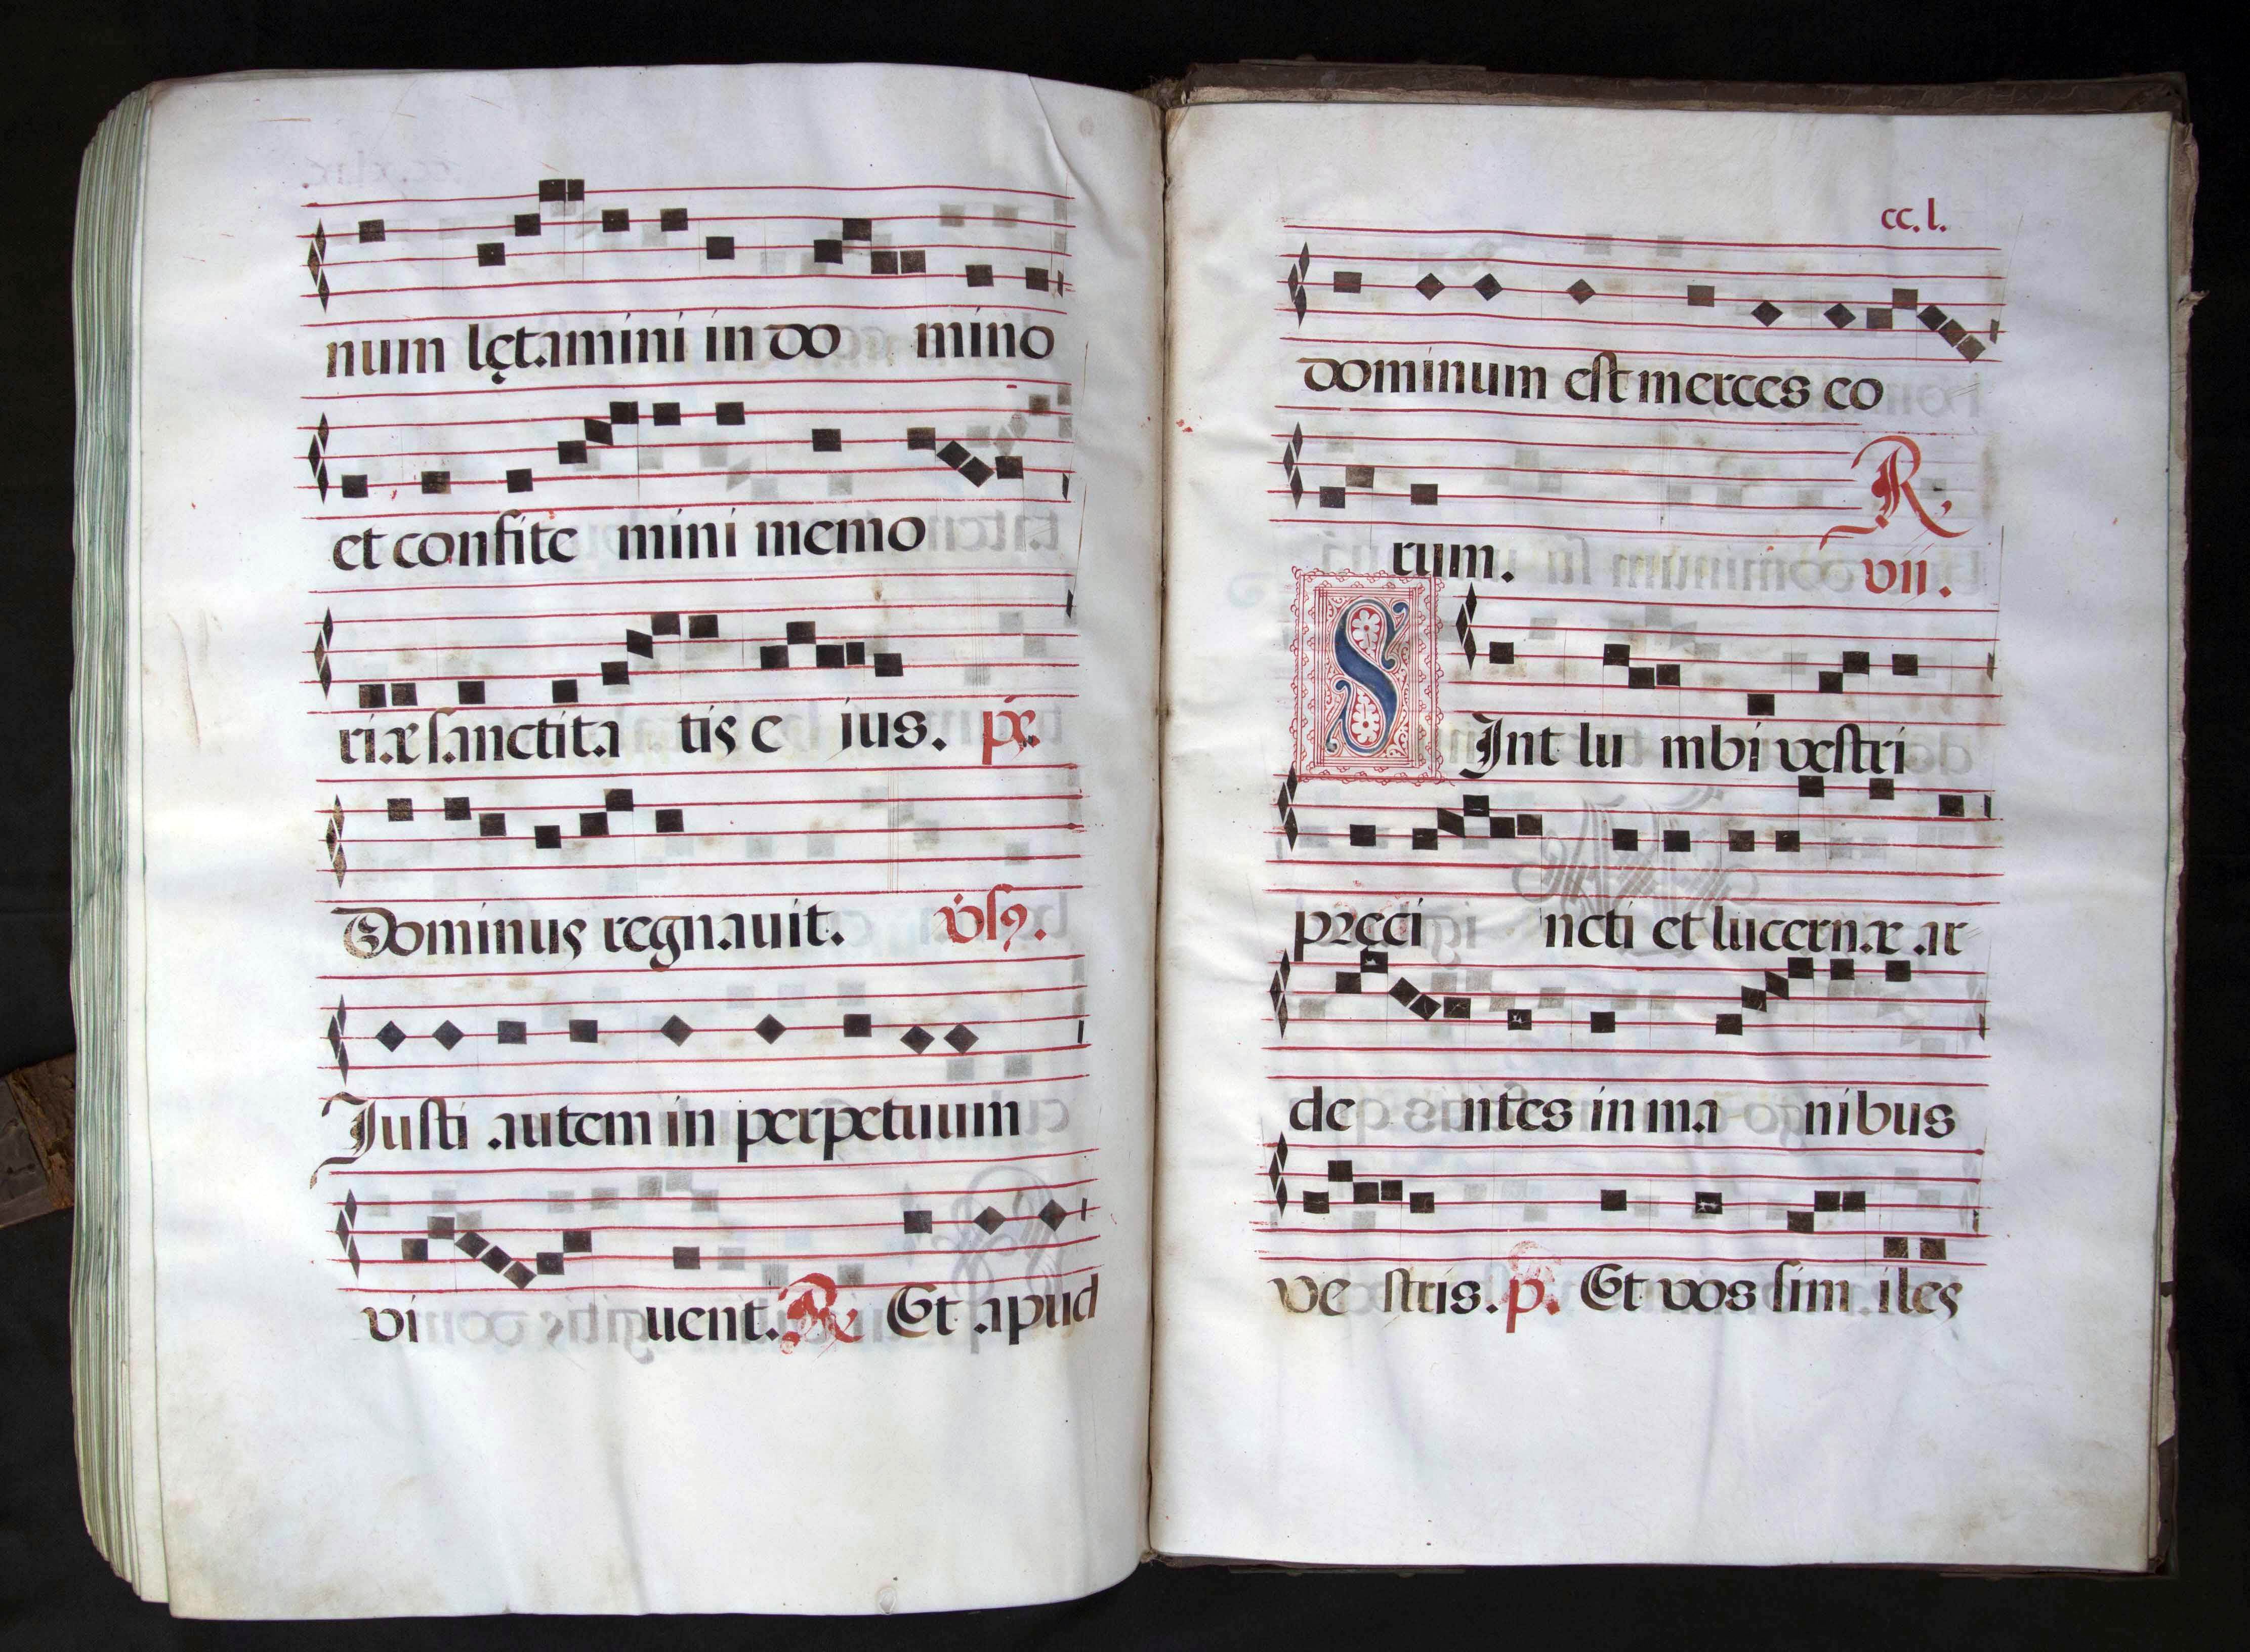 num lętamini in do mino
et confite mini memo
riæ sanctita tis e jus. ps.
Dominus regnauit.
Justi autem in perpetuum
vi uent. R. Et apud
cc. l.
dominum est merces eo
R.
rum.
vii.
SInt lu mbi vestri
pręci ncti et lucernæ ar
de ntes in ma nibus
ve stris. p. Et vos similes